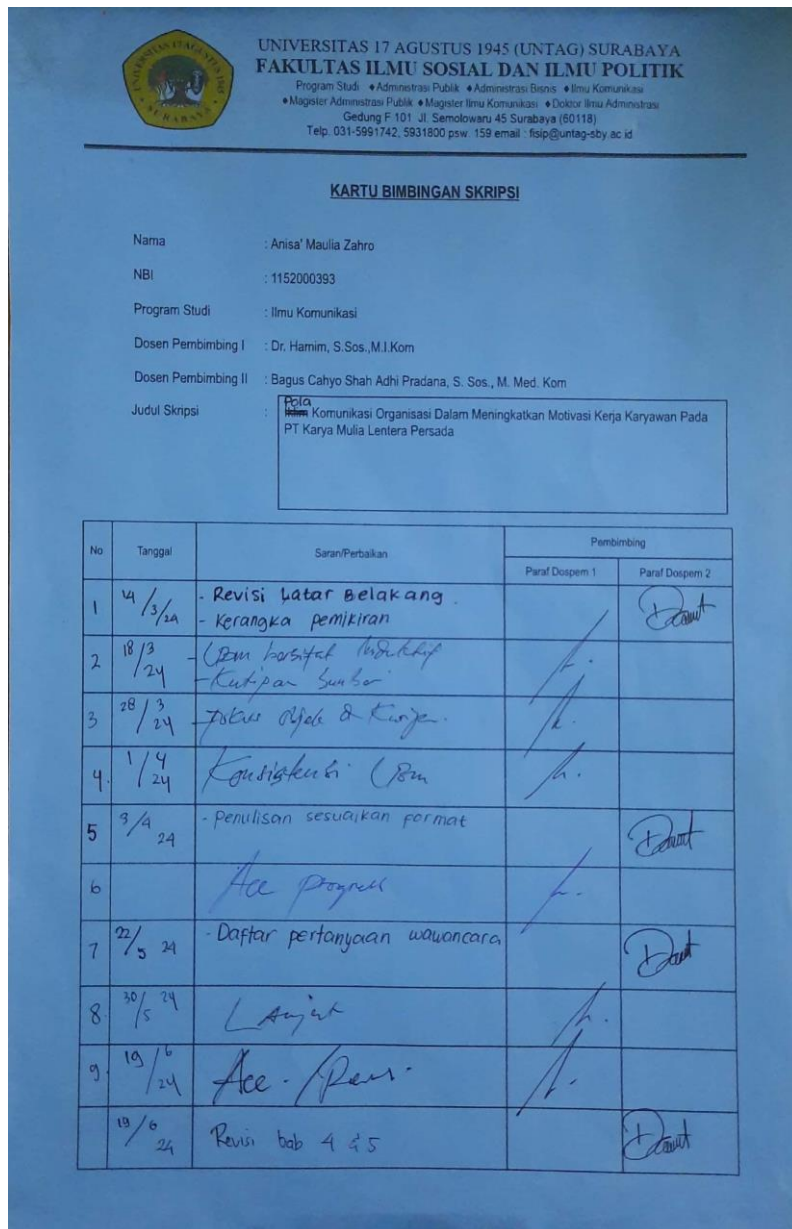 UNIVERSITAS 17 AGUSTUS 1945
SURABAYA
UNIVERSITAS 17 AGUSTUS 1945 (UNTAG) SURABAYA
FAKULTAS ILMU SOSIAL DAN ILMU POLITIK
Program Studi ♦Administrasi Publik ♦Administrasi Bisnis ♦Ilmu Komunikasi
♦Magister Administrasi Publik ♦Magister Ilmu Komunikasi ♦Doktor Ilmu Administrasi
Gedung F 101 Jl. Semolowaru 45 Surabaya (60118)
Telp. 031-5991742, 5931800 psw. 159 email : fisip@untag-sby.ac.id
KARTU BIMBINGAN SKRIPSI
Nama : Anisa' Maulia Zahro
NBI : 1152000393
Program Studi : Ilmu Komunikasi
Dosen Pembimbing I : Dr. Hamim, S.Sos.,M.I.Kom
Dosen Pembimbing II : Bagus Cahyo Shah Adhi Pradana, S. Sos., M. Med. Kom
Pola
Judul Skripsi : Iklim Komunikasi Organisasi Dalam Meningkatkan Motivasi Kerja Karyawan Pada
PT Karya Mulia Lentera Persada
No Tanggal Saran/Perbaikan Pembimbing
Paraf Dospem 1 Paraf Dospem 2
1 14/3/24 - Revisi Latar Belakang
- Kerangka pemikiran
2 18/3/24 - LBM bersifat Induktif
- Kutipan Sumber
3 28/3/24 - Fokus Objek &
4. 1/4/24 Konsistensi LBM
5 3/4 24 - Penulisan sesuaikan format
6 Acc
7 22/5 24 - Daftar pertanyaan wawancara
8 30/5 24 Lanjut
9 19/6/24 Acc.
19/6 24 Revisi bab 4 & 5